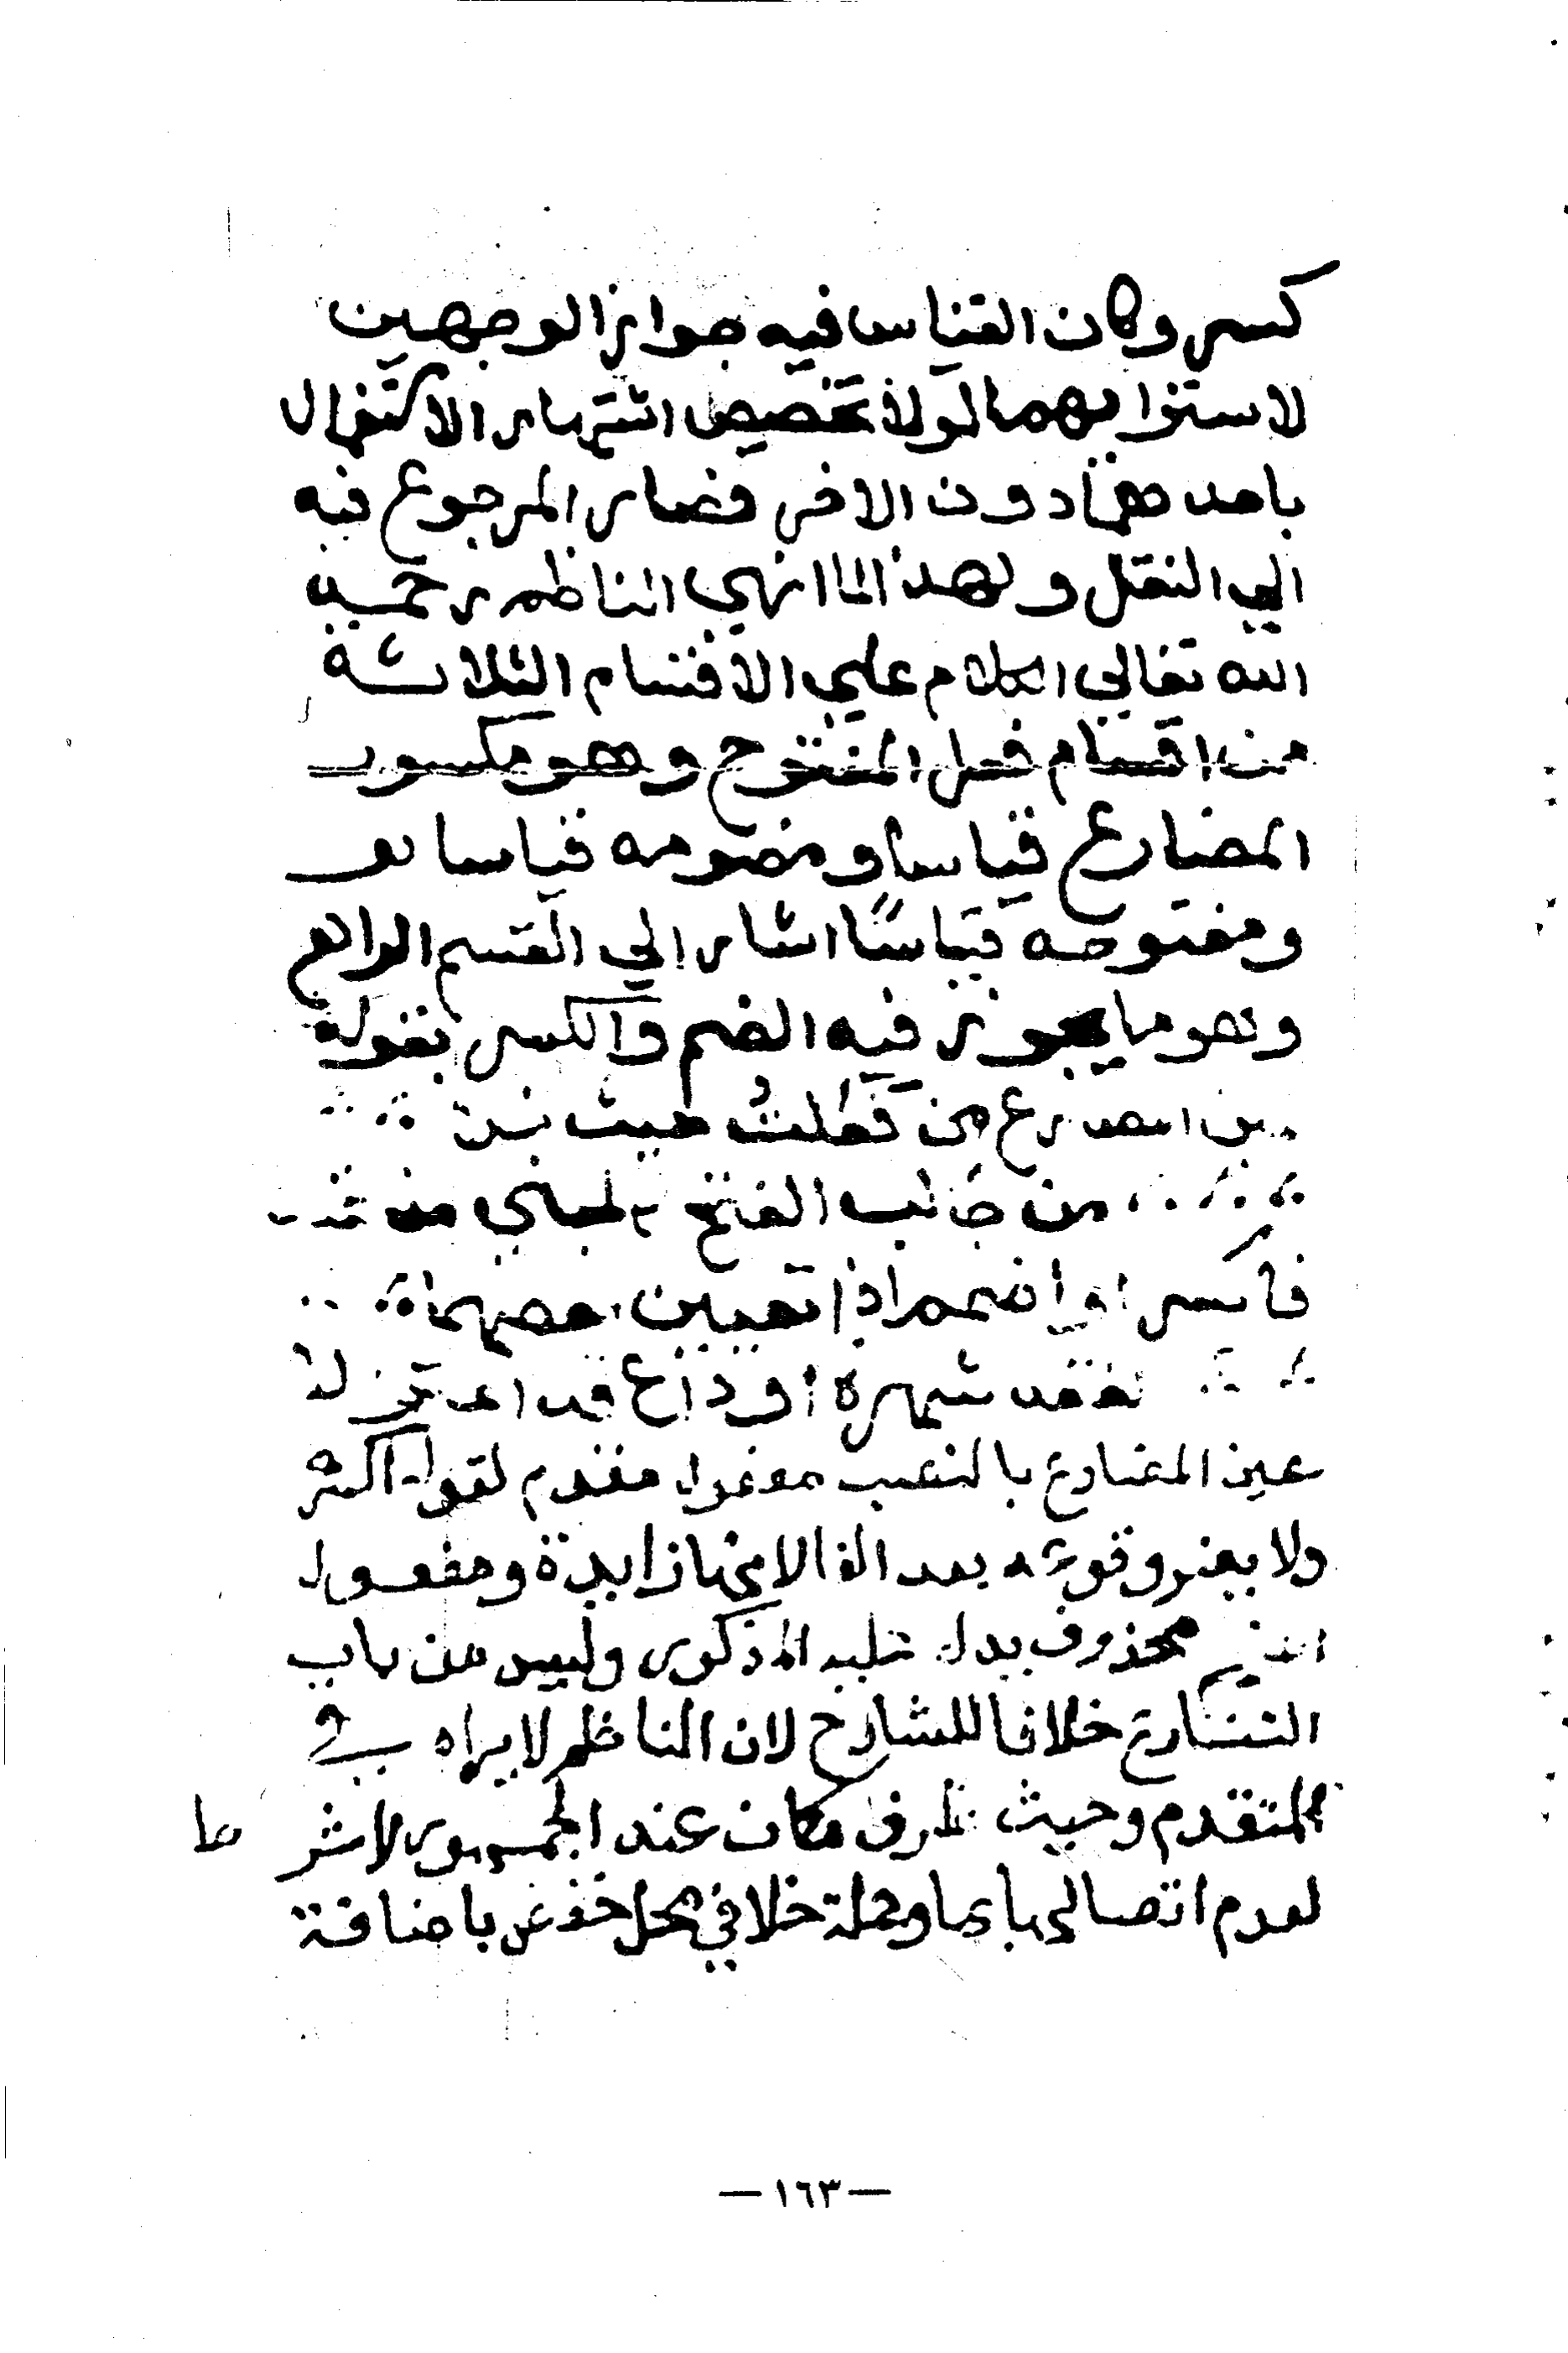 كسر وكان القياس فيه جواز الوجهين
لاستوائهما لولا تخصيص اشتهار الاستعمال
باحدهما دون الاخر فصار المرجوع فيه
الي النقل ولهذا لما انهي الناظم رحمه
الله تعالي الكلام علي الاقسام الثلاثة
من اقسام فعل المفتوح وهو مكسور
المضارع قياسا ومضمومه قياسا
ومفتوحه قياسًا اشار الي القسم الرابع
وهو ما يجوز فيه الضم والكسر بقوله
عين المضارع من فعلتُ حيث
من جالب الفتح كالمبني من
فاكسر او اضمم اذا تعيين بعضهما
لفقد شهرة او داع قد اعتزلا
عين المضارع بالنصب مفعول مقدم لقوله اكسر
ولا يضر وقوعه بعد الفا لانها زايدة ومفعول
اضمم محذوف يدل عليه المذكور وليس من باب
التنازع خلافا للشارح لان الناظم لا يراه في
المتقدم وحيث ظرف مكان عند الجمهور لا شرط
لعدم اتصالها بما وجملة خلا في محل خفض باضافة
— ١٦٣ —